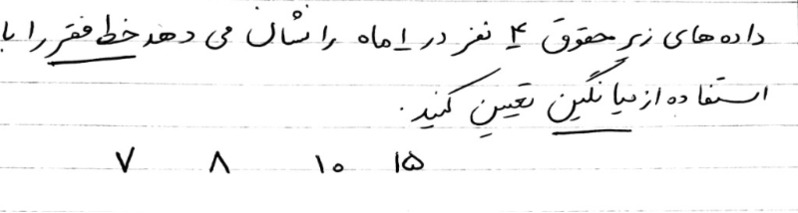 داده های زیر حقوق ۴ نفر در ۱ ماه را نشان می دهد خط فقر را با
استفاده از میانگین تعیین کنید.
۷ ۸ ۱۰ ۱۵